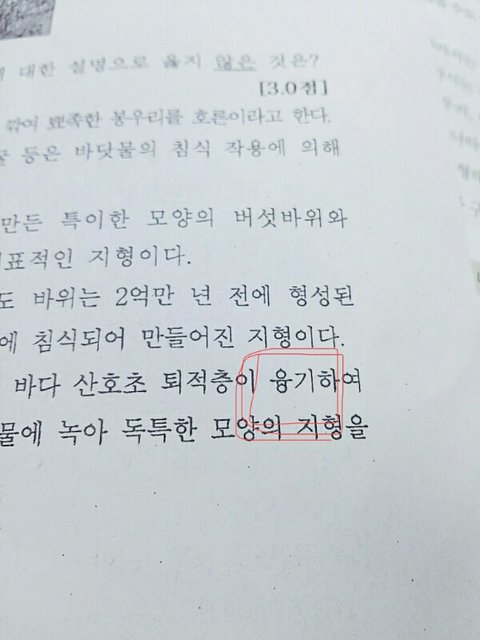 대한 설명으로 옳지 않은 것은?
[3.0점]
깎여 뾰족한 봉우리를 호른이라고 한다.
등은 바닷물의 침식 작용에 의해
만든 특이한 모양의 버섯바위와
표적인 지형이다.
바위는 2억만 년 전에 형성된
에 침식되어 만들어진 지형이다.
바다 산호초 퇴적층이 융기하여
물에 녹아 독특한 모양의 지형을